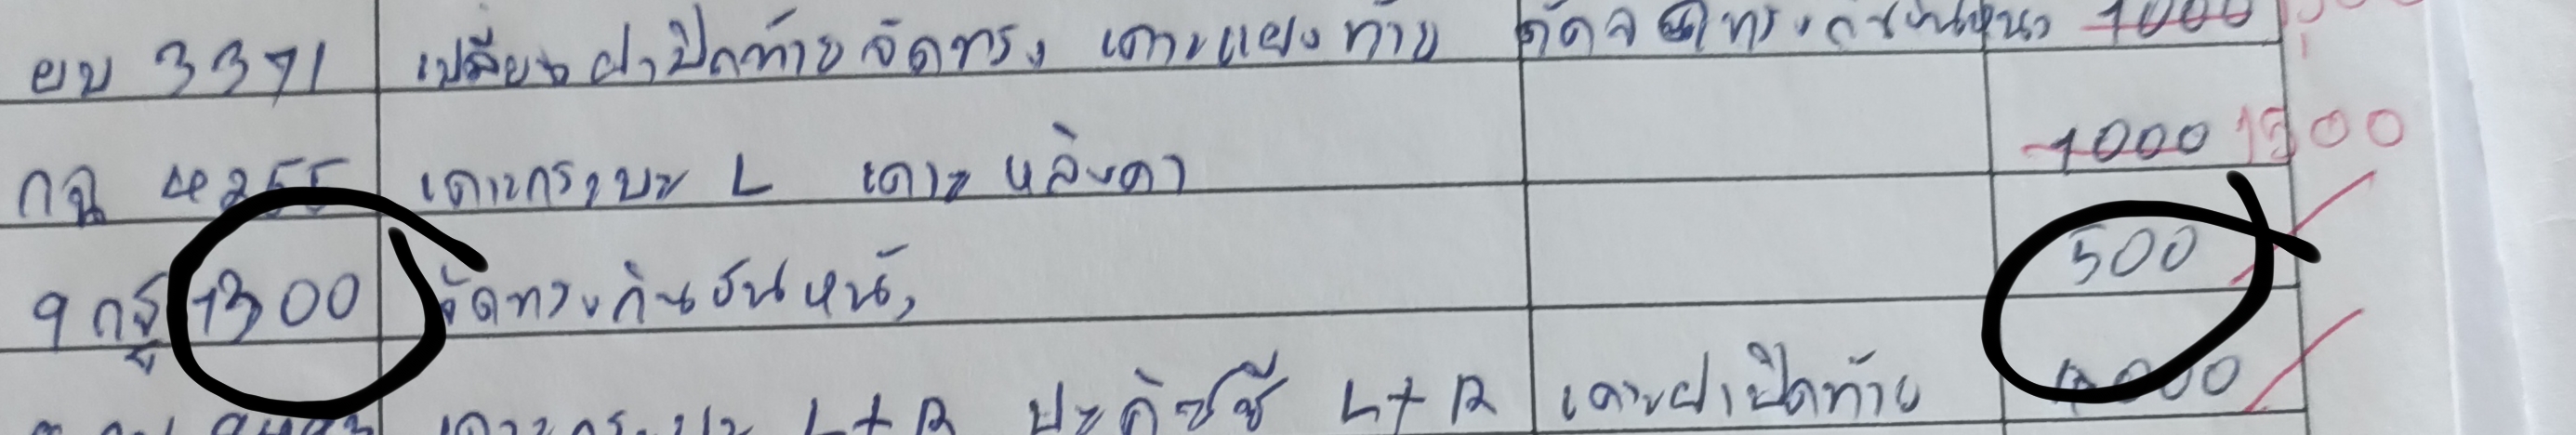 ยบ 3371 เปลี่ยนฝาปิดท้ายจัดทรง เคาะแผงท้าย 1000
กฉ 4255 เคาะกระบะ L เคาะหลังคา 1000 1500
9กฐ 1300 จัดทรงกันชนหน้า 500
เคาะกระบะ L+R L+R เคาะฝาปิดท้าย